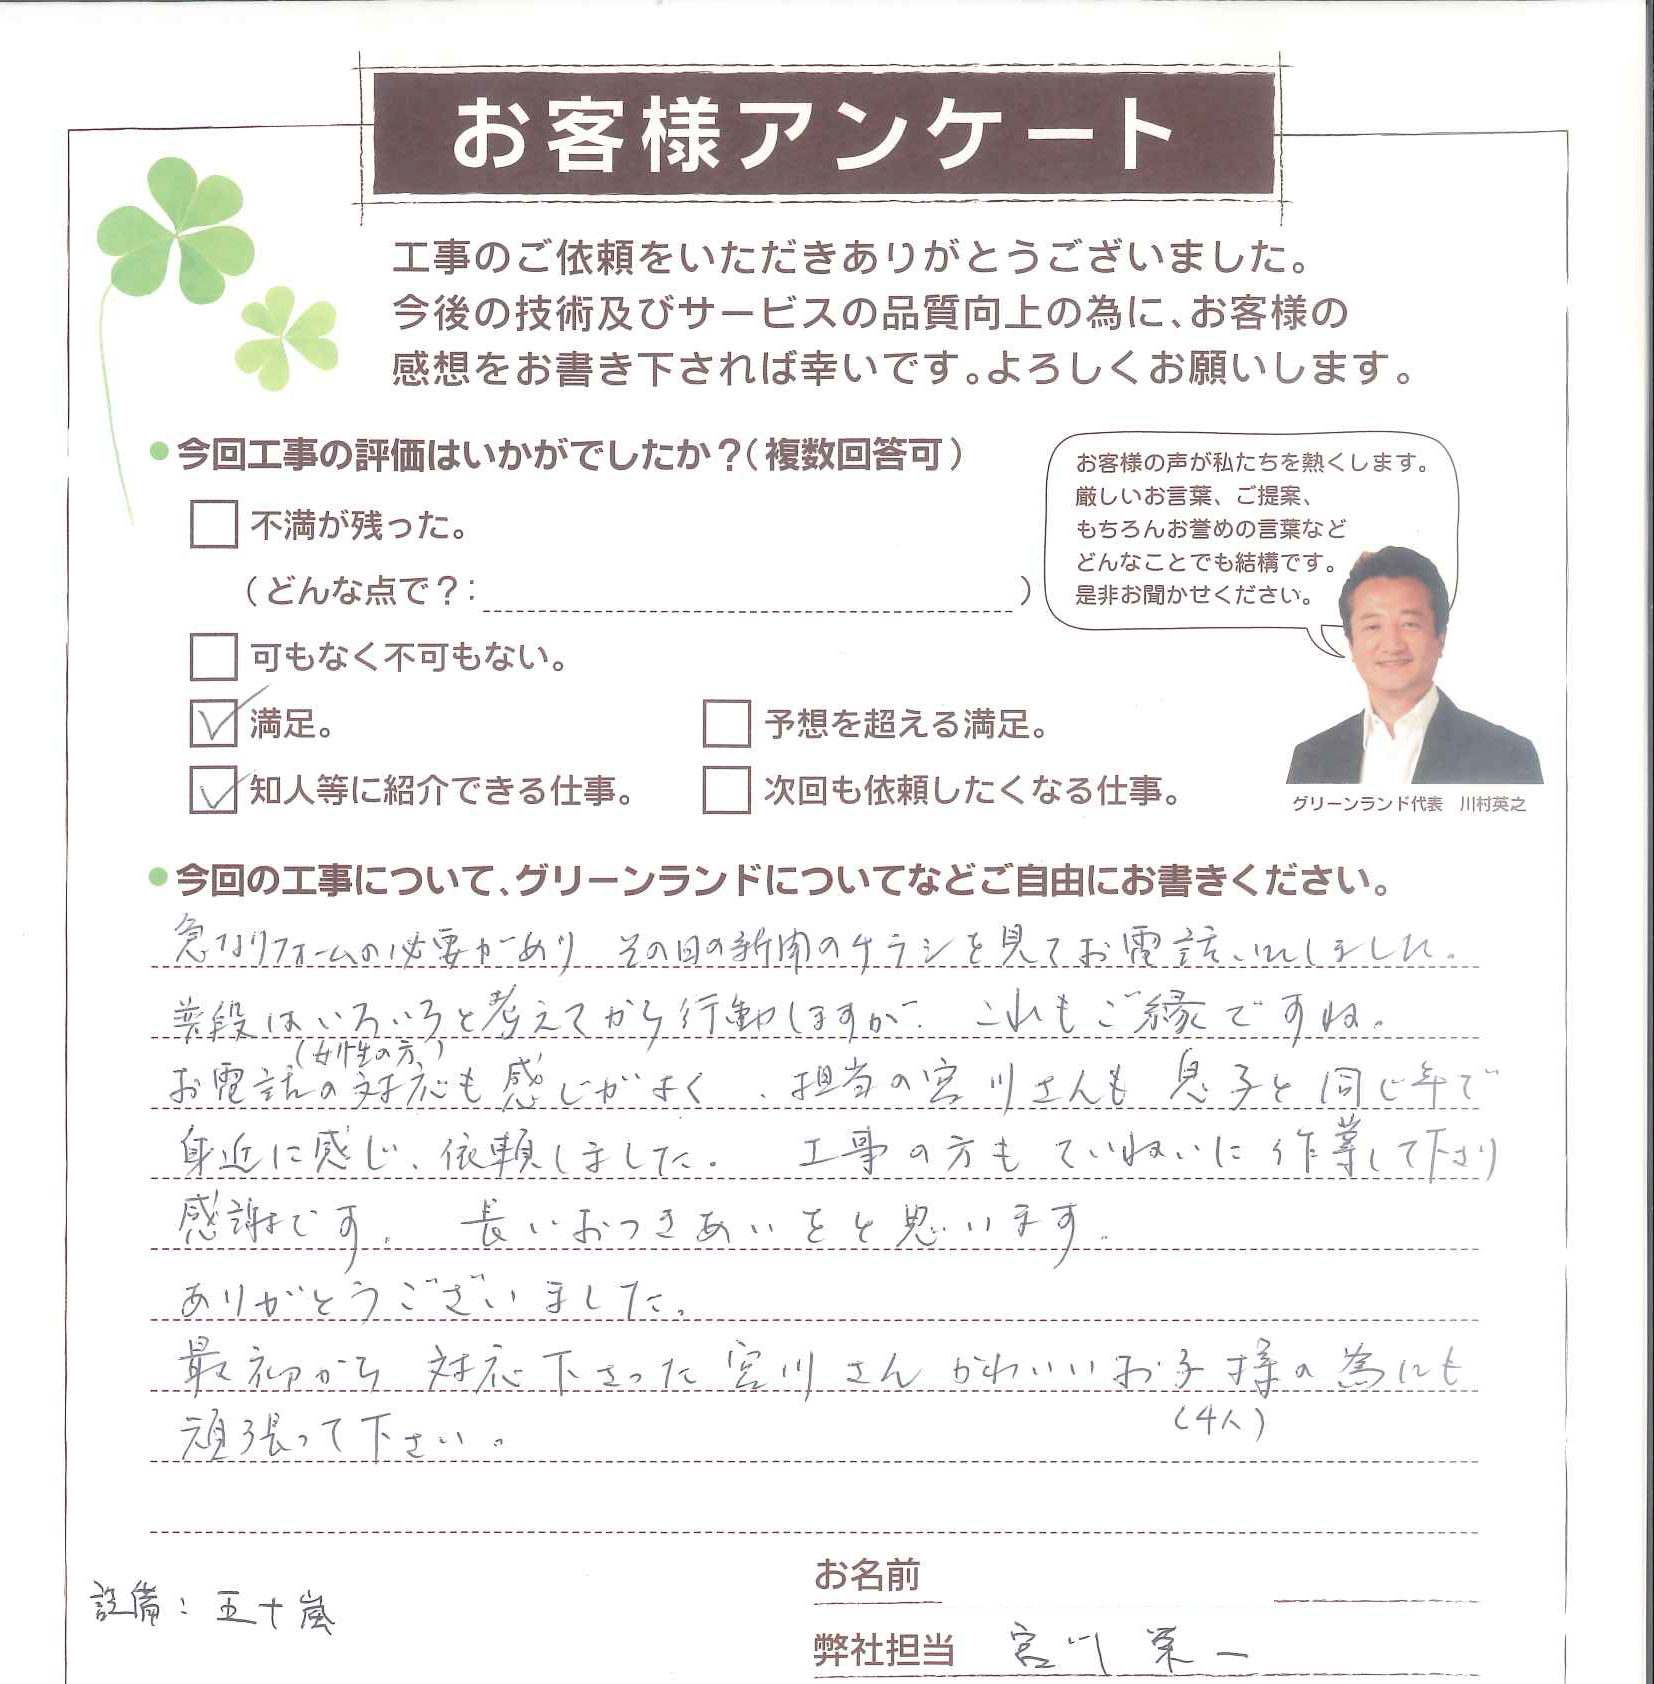 お客様アンケート
工事のご依頼をいただきありがとうございました。
今後の技術及びサービスの品質向上の為に、お客様の
感想をお書き下されば幸いです。よろしくお願いします。
今回工事の評価はいかがでしたか？（複数回答可）
不満が残った。
（どんな点で？：　）
可もなく不可もない。
満足。
予想を超える満足。
知人等に紹介できる仕事。
次回も依頼したくなる仕事。
お客様の声が私たちを熱くします。
厳しいお言葉、ご提案、
もちろんお誉めの言葉など
どんなことでも結構です。
是非お聞かせください。
グリーンランド代表　川村英之
今回の工事について、グリーンランドについてなどご自由にお書きください。
急なリフォームの必要があり　その日の新聞のチラシを見てお電話いれしました。
普段はいろいろと考えてから行動しますが、これもご縁ですね。
（女性の方）
お電話の対応も感じがよく、担当の宮川さんも息子と同じ年で
身近に感じ、依頼しました。　工事の方もていねいに作業して下さり
感謝です。　長いおつきあいをと思います。
ありがとうございました。
最初から対応下さった宮川さん　かわいいお子様の為にも
（4人）
頑張って下さい。
設備：五十嵐
お名前
弊社担当　宮川　栄一